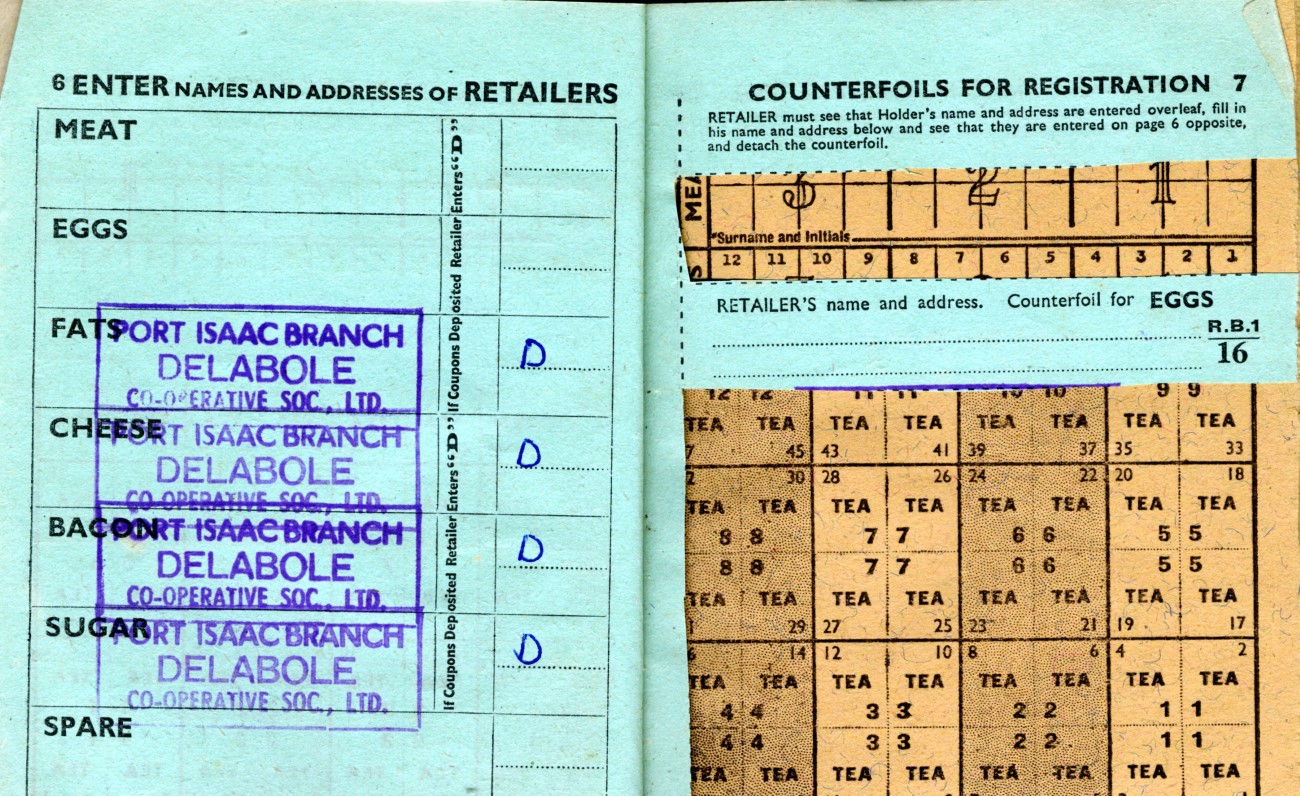 6 ENTER NAMES AND ADDRESSES OF RETAILERS
MEAT
EGGS
FATS
PORT ISAAC BRANCH
DELABOLE
CO-OPERATIVE SOC., LTD.
D
CHEESE
PORT ISAAC BRANCH
DELABOLE
CO-OPERATIVE SOC., LTD.
D
BACON
PORT ISAAC BRANCH
DELABOLE
CO-OPERATIVE SOC., LTD.
D
SUGAR
PORT ISAAC BRANCH
DELABOLE
CO-OPERATIVE SOC., LTD.
D
SPARE
If Coupons Deposited Retailer Enters "D"
If Coupons Deposited Retailer Enters "D"
COUNTERFOILS FOR REGISTRATION 7
RETAILER must see that Holder's name and address are entered overleaf, fill in
his name and address below and see that they are entered on page 6 opposite,
and detach the counterfoil.
3 2 1
*Surname and Initials
12 11 10 9 8 7 6 5 4 3 2 1
RETAILER'S name and address. Counterfoil for EGGS
R.B.1
16
12 12 11 11 10 10 9 9
TEA TEA TEA TEA TEA TEA TEA TEA
45 43 41 39 37 35 33
30 28 26 24 22 20 18
TEA TEA TEA TEA TEA TEA TEA TEA
8 8 7 7 6 6 5 5
8 8 7 7 6 6 5 5
TEA TEA TEA TEA TEA TEA TEA TEA
29 27 25 23 21 19 17
14 12 10 8 6 4 2
TEA TEA TEA TEA TEA TEA TEA TEA
4 4 3 3 2 2 1 1
4 4 3 3 2 2 1 1
TEA TEA TEA TEA TEA TEA TEA TEA